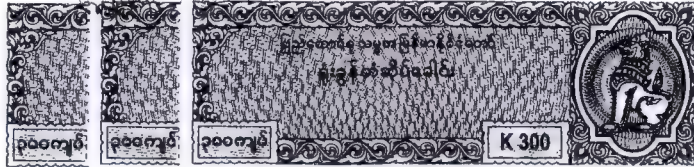 ပြည်ထောင်စု သမ္မတမြန်မာနိုင်ငံတော်
ရုံးခွန်တံဆိပ်ခေါင်း
၃၀၀ကျပ် ၃၀၀ကျပ် ၃၀၀ကျပ် K 300